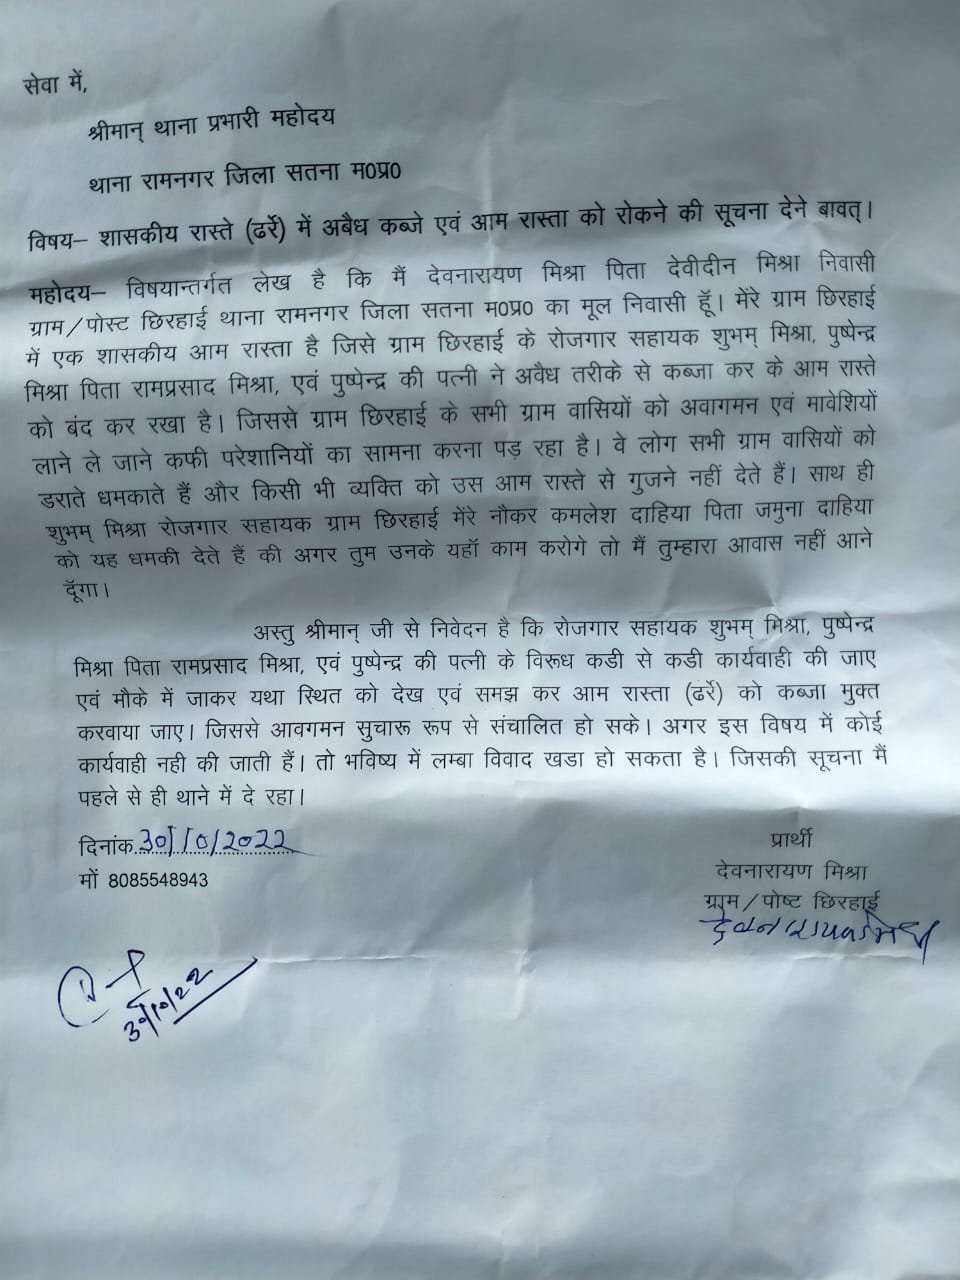 सेवा में,
श्रीमान् थाना प्रभारी महोदय
थाना रामनगर जिला सतना म0प्र0
विषय– शासकीय रास्ते (ढर्रे) में अबैध कब्जे एवं आम रास्ता को रोकने की सूचना देने बावत्।
महोदय– विषयान्तर्गत लेख है कि मैं देवनारायण मिश्रा पिता देवीदीन मिश्रा निवासी
ग्राम/पोस्ट छिरहाई थाना रामनगर जिला सतना म0प्र0 का मूल निवासी हूॅ। मेंरे ग्राम छिरहाई
में एक शासकीय आम रास्ता है जिसे ग्राम छिरहाई के रोजगार सहायक शुभम् मिश्रा, पुष्पेन्द्र
मिश्रा पिता रामप्रसाद मिश्रा, एवं पुष्पेन्द्र की पत्नी ने अवैध तरीके से कब्जा कर के आम रास्ते
को बंद कर रखा है। जिससे ग्राम छिरहाई के सभी ग्राम वासियों को अवागमन एवं मावेशियों
लाने ले जाने कफी परेशानियों का सामना करना पड़ रहा है। वे लोग सभी ग्राम वासियों को
डराते धमकाते हैं और किसी भी व्यक्ति को उस आम रास्ते से गुजने नहीं देते हैं। साथ ही
शुभम् मिश्रा रोजगार सहायक ग्राम छिरहाई मेंरे नौकर कमलेश दाहिया पिता जमुना दाहिया
को यह धमकी देते हैं की अगर तुम उनके यहॉ काम करोगे तो मैं तुम्हारा आवास नहीं आने
दूॅगा।
अस्तु श्रीमान् जी से निवेदन है कि रोजगार सहायक शुभम् मिश्रा, पुष्पेन्द्र
मिश्रा पिता रामप्रसाद मिश्रा, एवं पुष्पेन्द्र की पत्नी के विरूध कडी से कडी कार्यवाही की जाए
एवं मौके में जाकर यथा स्थित को देख एवं समझ कर आम रास्ता (ढर्रे) को कब्जा मुक्त
करवाया जाए। जिससे आवगमन सुचारू रूप से संचालित हो सके। अगर इस विषय में कोई
कार्यवाही नही की जाती हैं। तो भविष्य में लम्बा विवाद खडा हो सकता है। जिसकी सूचना मैं
पहले से ही थाने में दे रहा।
दिनांक 30/10/2022
मों 8085548943
प्रार्थी
देवनारायण मिश्रा
ग्राम/पोष्ट छिरहाई
देवनारायण मिश्रा
30/10/22